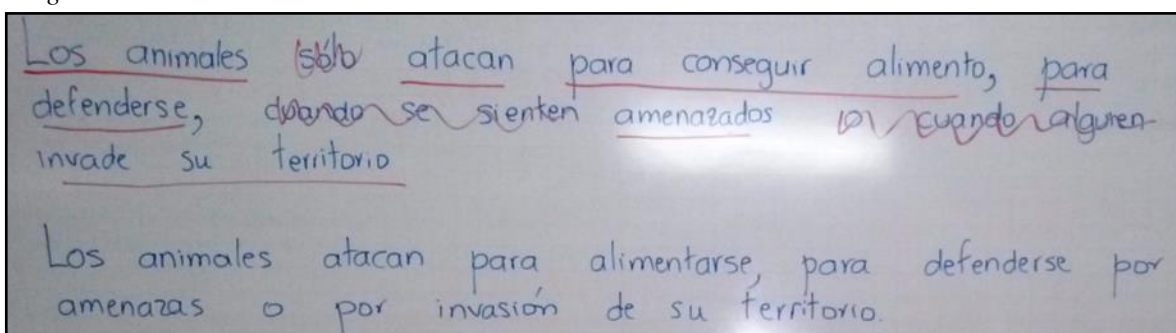 Los animales sólo atacan para conseguir alimento, para
defenderse, cuando se sienten amenazados o cuando alguien
invade su territorio
Los animales atacan para alimentarse, para defenderse por
amenazas o por invasión de su territorio.